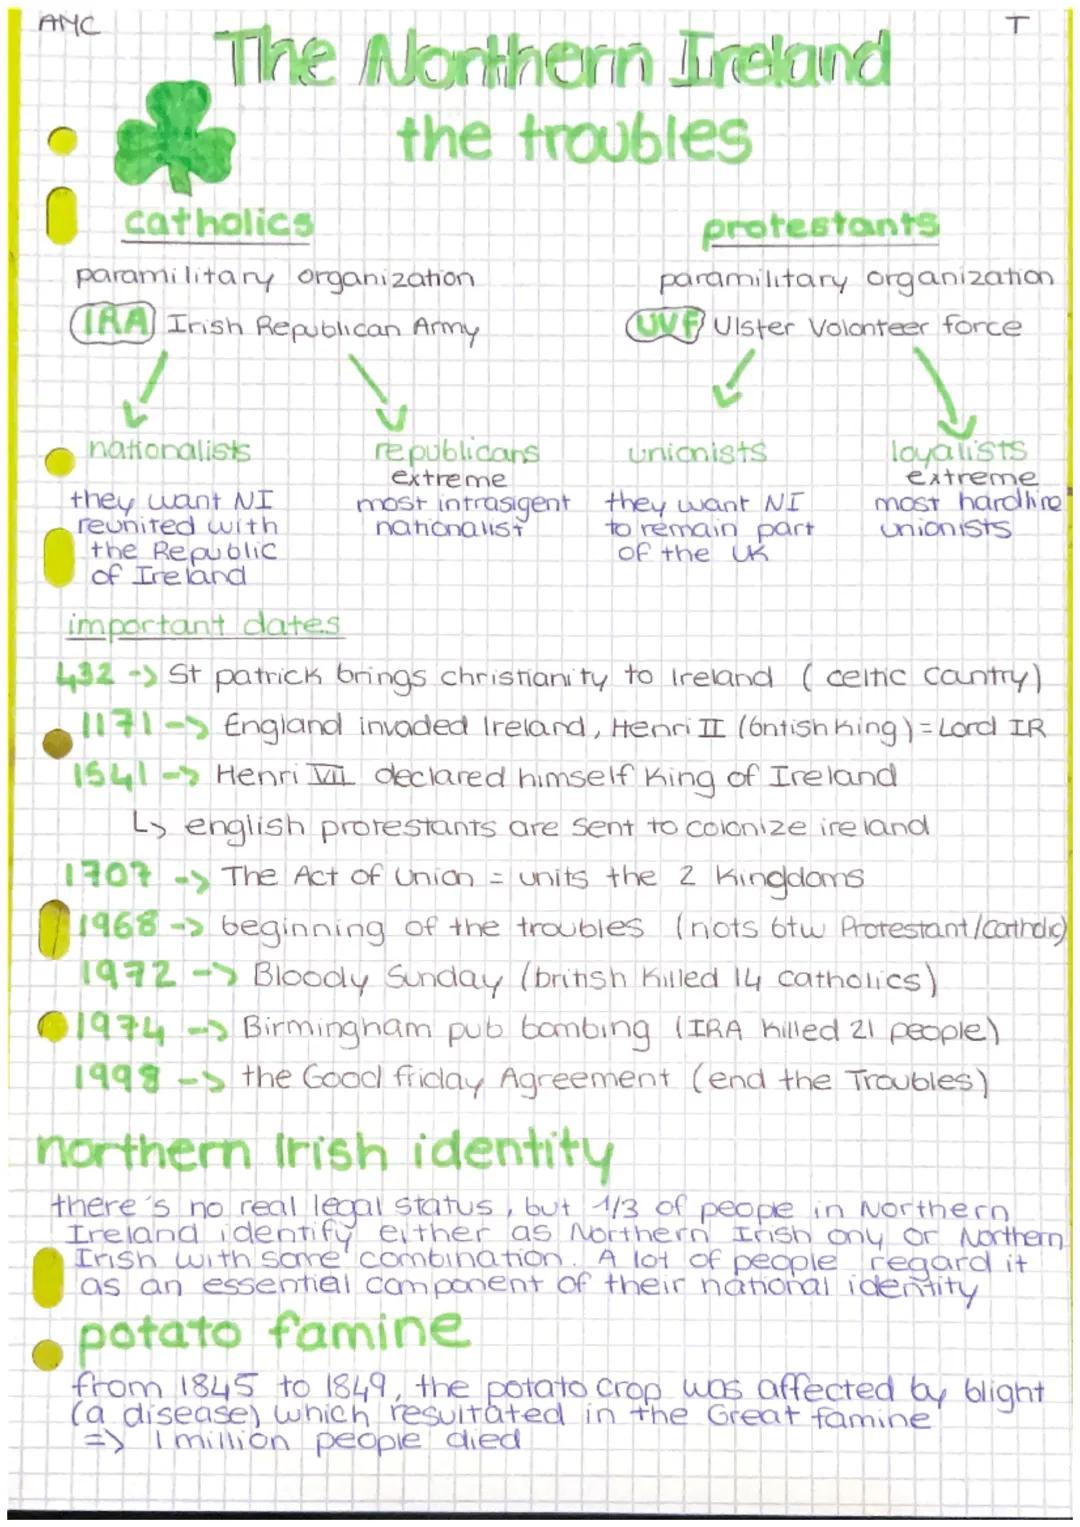 AMC
T
The Northern Ireland
the troubles
catholics
protestants
paramilitary organization
paramilitary organization
IRA Irish Republican Army
UVF Ulster Volonteer force
nationalists
republicans
unionists
loyalists
extreme
extreme
they want NI
reunited with
the Republic
of Ireland
most intrasigent
nationalist
they want NI
to remain part
of the UK
most hardline
unionists
important dates
432 -> St patrick brings christianity to Ireland ( celtic cantry)
1171 -> England invaded Ireland, Henri II (british king) = Lord IR
1541 -> Henri VII declared himself King of Ireland
↳ english protestants are sent to colonize ireland
1707 -> The Act of Union = units the 2 kingdoms
1968 -> beginning of the troubles (riots btw Protestant/Catholic)
1972 -> Bloody Sunday (british killed 14 catholics)
1974 -> Birmingham pub bombing (IRA killed 21 people)
1998 -> the Good friday Agreement (end the Troubles)
northern Irish identity
there's no real legal status, but 1/3 of people in Northern
Ireland identify either as Northern Irish only or Northern
Irish with some combination. A lot of people regard it
as an essential component of their national identity
potato famine
from 1845 to 1849, the potato crop was affected by blight
(a disease) which resultated in the Great famine
=> 1 million people died